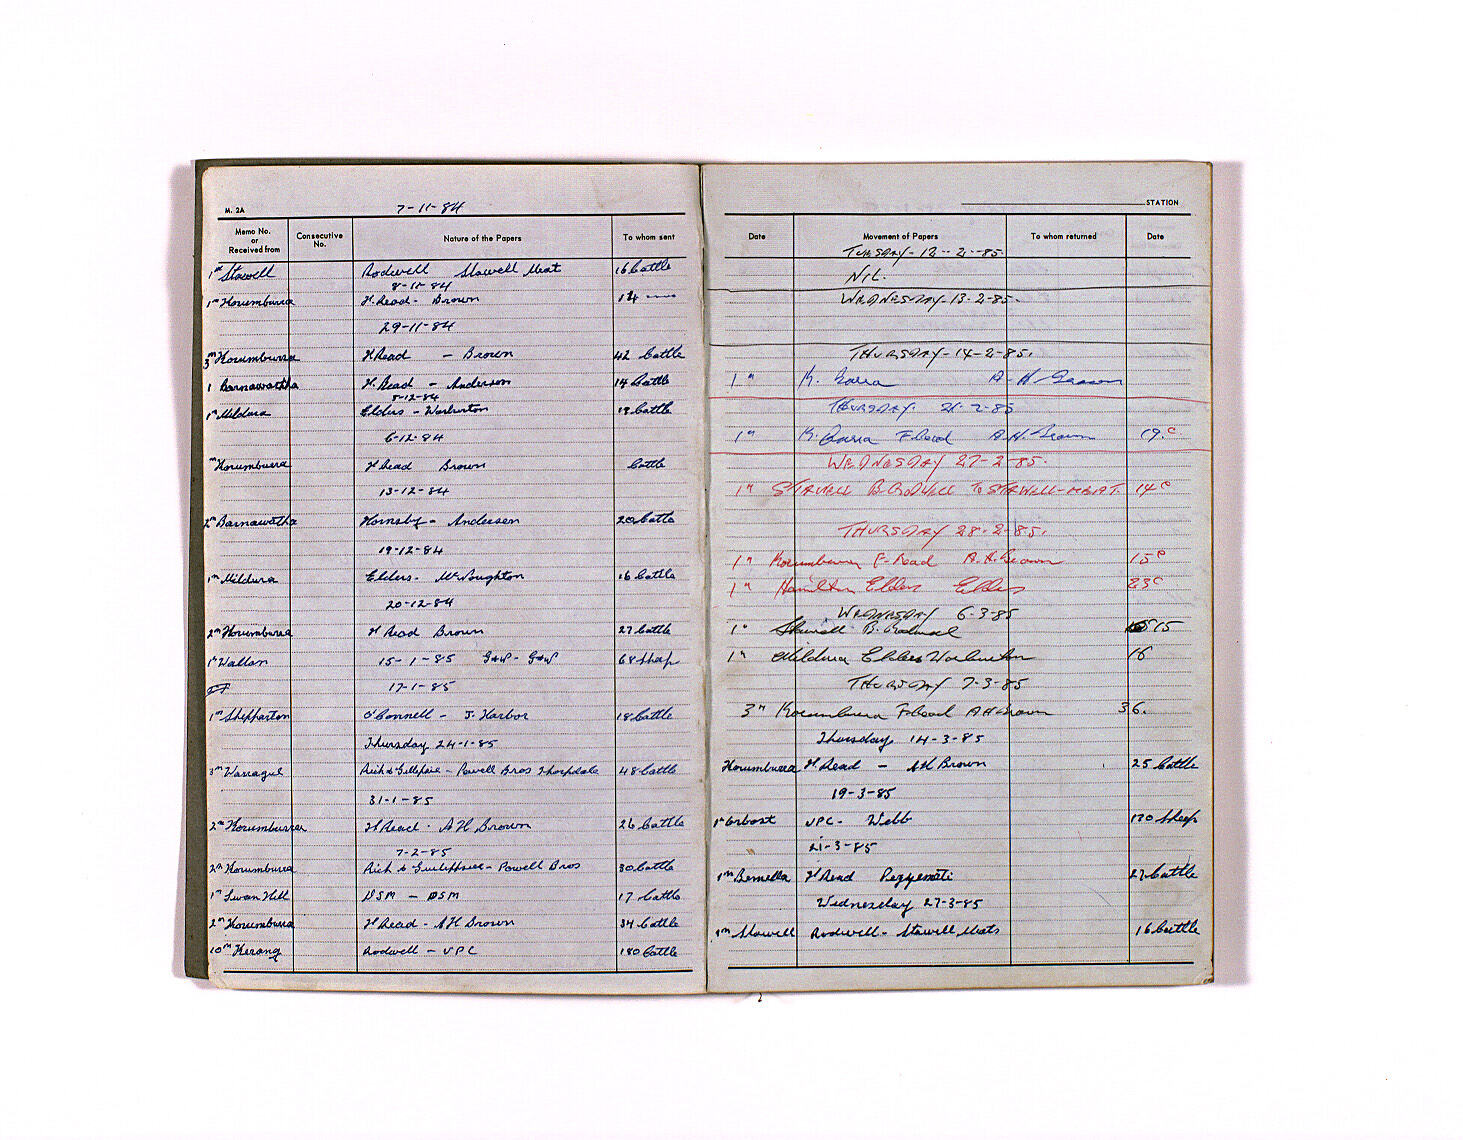 M. 2A 7-11-84
Memo No. or Received from Consecutive No. Nature of the Papers To whom sent
1 m Stawell Rodwell Stawell Meat 16 Cattle
8-11-84
1 m Korumburra H. Read - Brown 14 -----
29-11-84
3 m Korumburra H Read - Brown 42 Cattle
1 Barnawartha H. Read - Anderson 14 Cattle
5-12-84
1 m Mildura Elders - Warburton 19 Cattle
6-12-84
m Korumburra H Read Brown Cattle
13-12-84
2 m Barnawartha Hornsby - Andersen 20 Cattle
19-12-84
1 m Mildura Elders - McNoughton 16 Cattle
20-12-84
2 m Korumburra H Read Brown 27 Cattle
1 m Wallan 15-1-85 G&W - G&W 68 Sheep
17-1-85
1 m Shepparton O'Connell - J. Harbor 18 Cattle
Thursday 24-1-85
3 m Warragul Rich & Gillespie - Powell Bros Thorpdale 48 Cattle
31-1-85
2 m Korumburra H Read - A H Brown 26 Cattle
7-2-85
2 m Korumburra Rich & - Powell Bros 30 Cattle
1 m Swan Hill DSM - DSM 17 Cattle
2 m Korumburra H Read - AH Brown 34 Cattle
10 m Kerang Rodwell - VPC 180 Cattle
STATION
Date Movement of Papers To whom returned Date
TUESDAY - 12-2-85.
NIL.
WEDNESDAY - 13-2-85.
THURSDAY - 14-2-85.
1 m K. Borra A-H-
THURSDAY. 21-2-85
1 m K. Borra F Read A.H. Brown 19.c
WEDNESDAY 27-2-85.
1 m STAWELL B. RODWELL TO STAWELL-MEAT. 14c
THURSDAY 28-2-85.
1 m Korumburra F-Read A.H. Brown 15c
1 m Hamilton Elders Elders 23c
WEDNESDAY 6-3-85
1 m Stawell B. Rodwell 15
1 m Mildura Elders Warburton 16
THURSDAY 7-3-85
3 m Korumburra F Read AH Brown 36.
Thursday 14-3-85
Korumburra H Read - AH Brown 25 Cattle
19-3-85
1 m Orbost VPC - Webb 170 Sheep
21-3-85
1 m Benalla H Read 27 Cattle
Wednesday 27-3-85
1 m Stawell Rodwell - Stawell Meats 16 Cattle